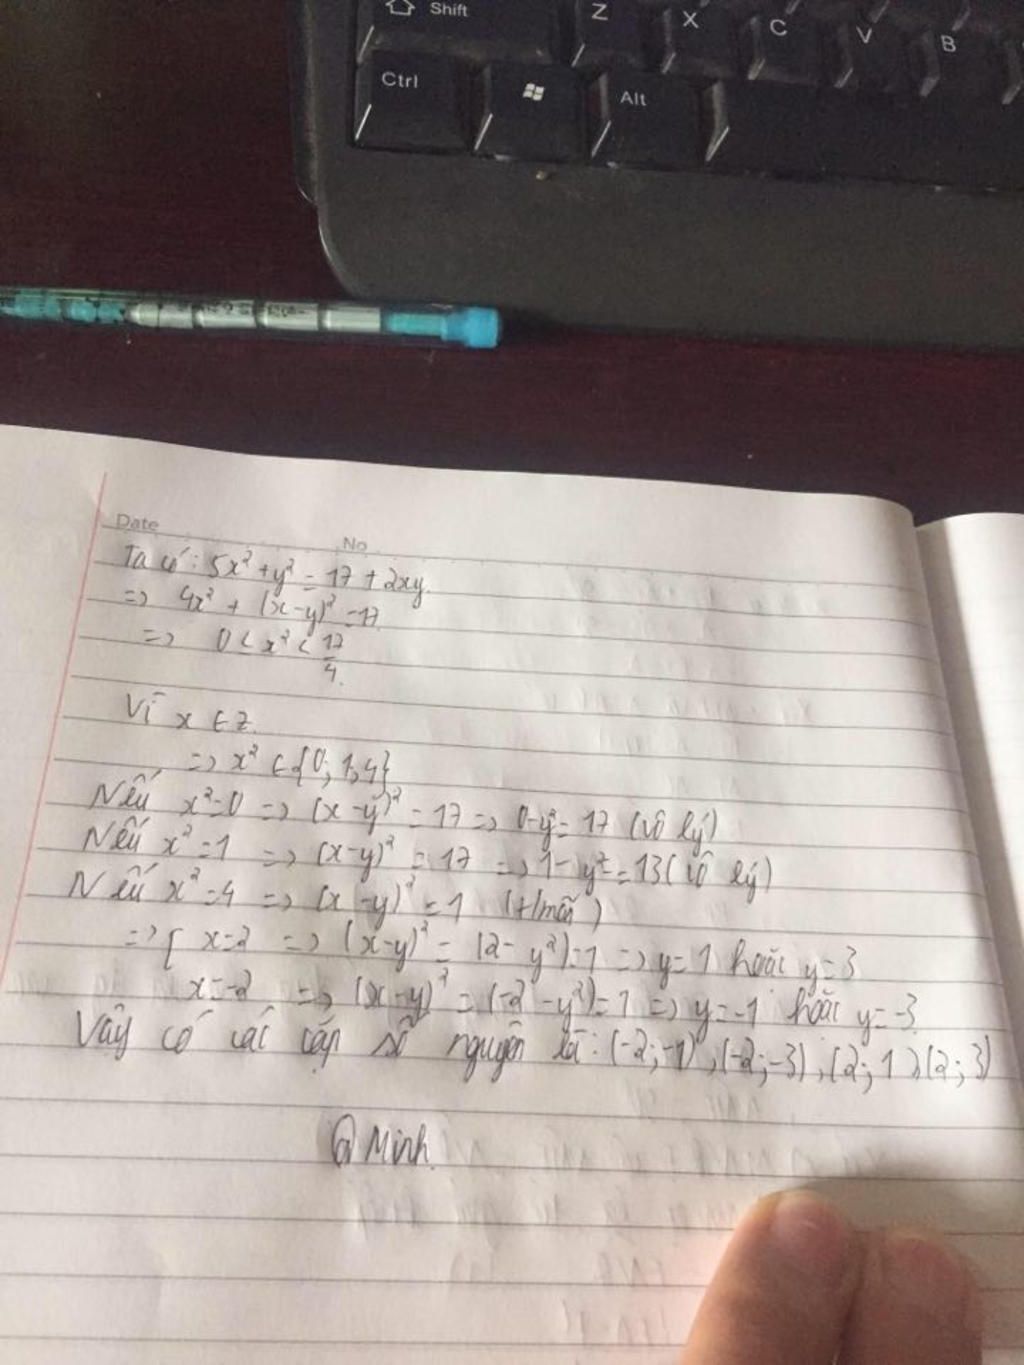 Shift
Z
X
C
V
B
Ctrl
Alt
Date
No
Ta có: 5x² + y² = 17 + 2xy
=> 4x² + (x-y)² = 17
=> 0 < x² < 17/4.
Vì x ∈ Z
=> x² ∈ {0; 1, 4}
Nếu x²=0 => (x-y)² = 17 => 0-y²= 17 (vô lý)
Nếu x²=1 => (x-y)² = 17 => 1-y²=13 (vô lý)
Nếu x²=4 => (x-y)² = 1 (t/mãn)
=> [ x=2 => (x-y)² = (2-y²)=1 => y=1 hoặc y=3
x=-2 => (x-y)² = (-2-y²)=1 => y=-1 hoặc y=-3.
Vậy có các cặp số nguyên là: (-2;-1), (-2;-3), (2;1), (2;3)
Q Minh.